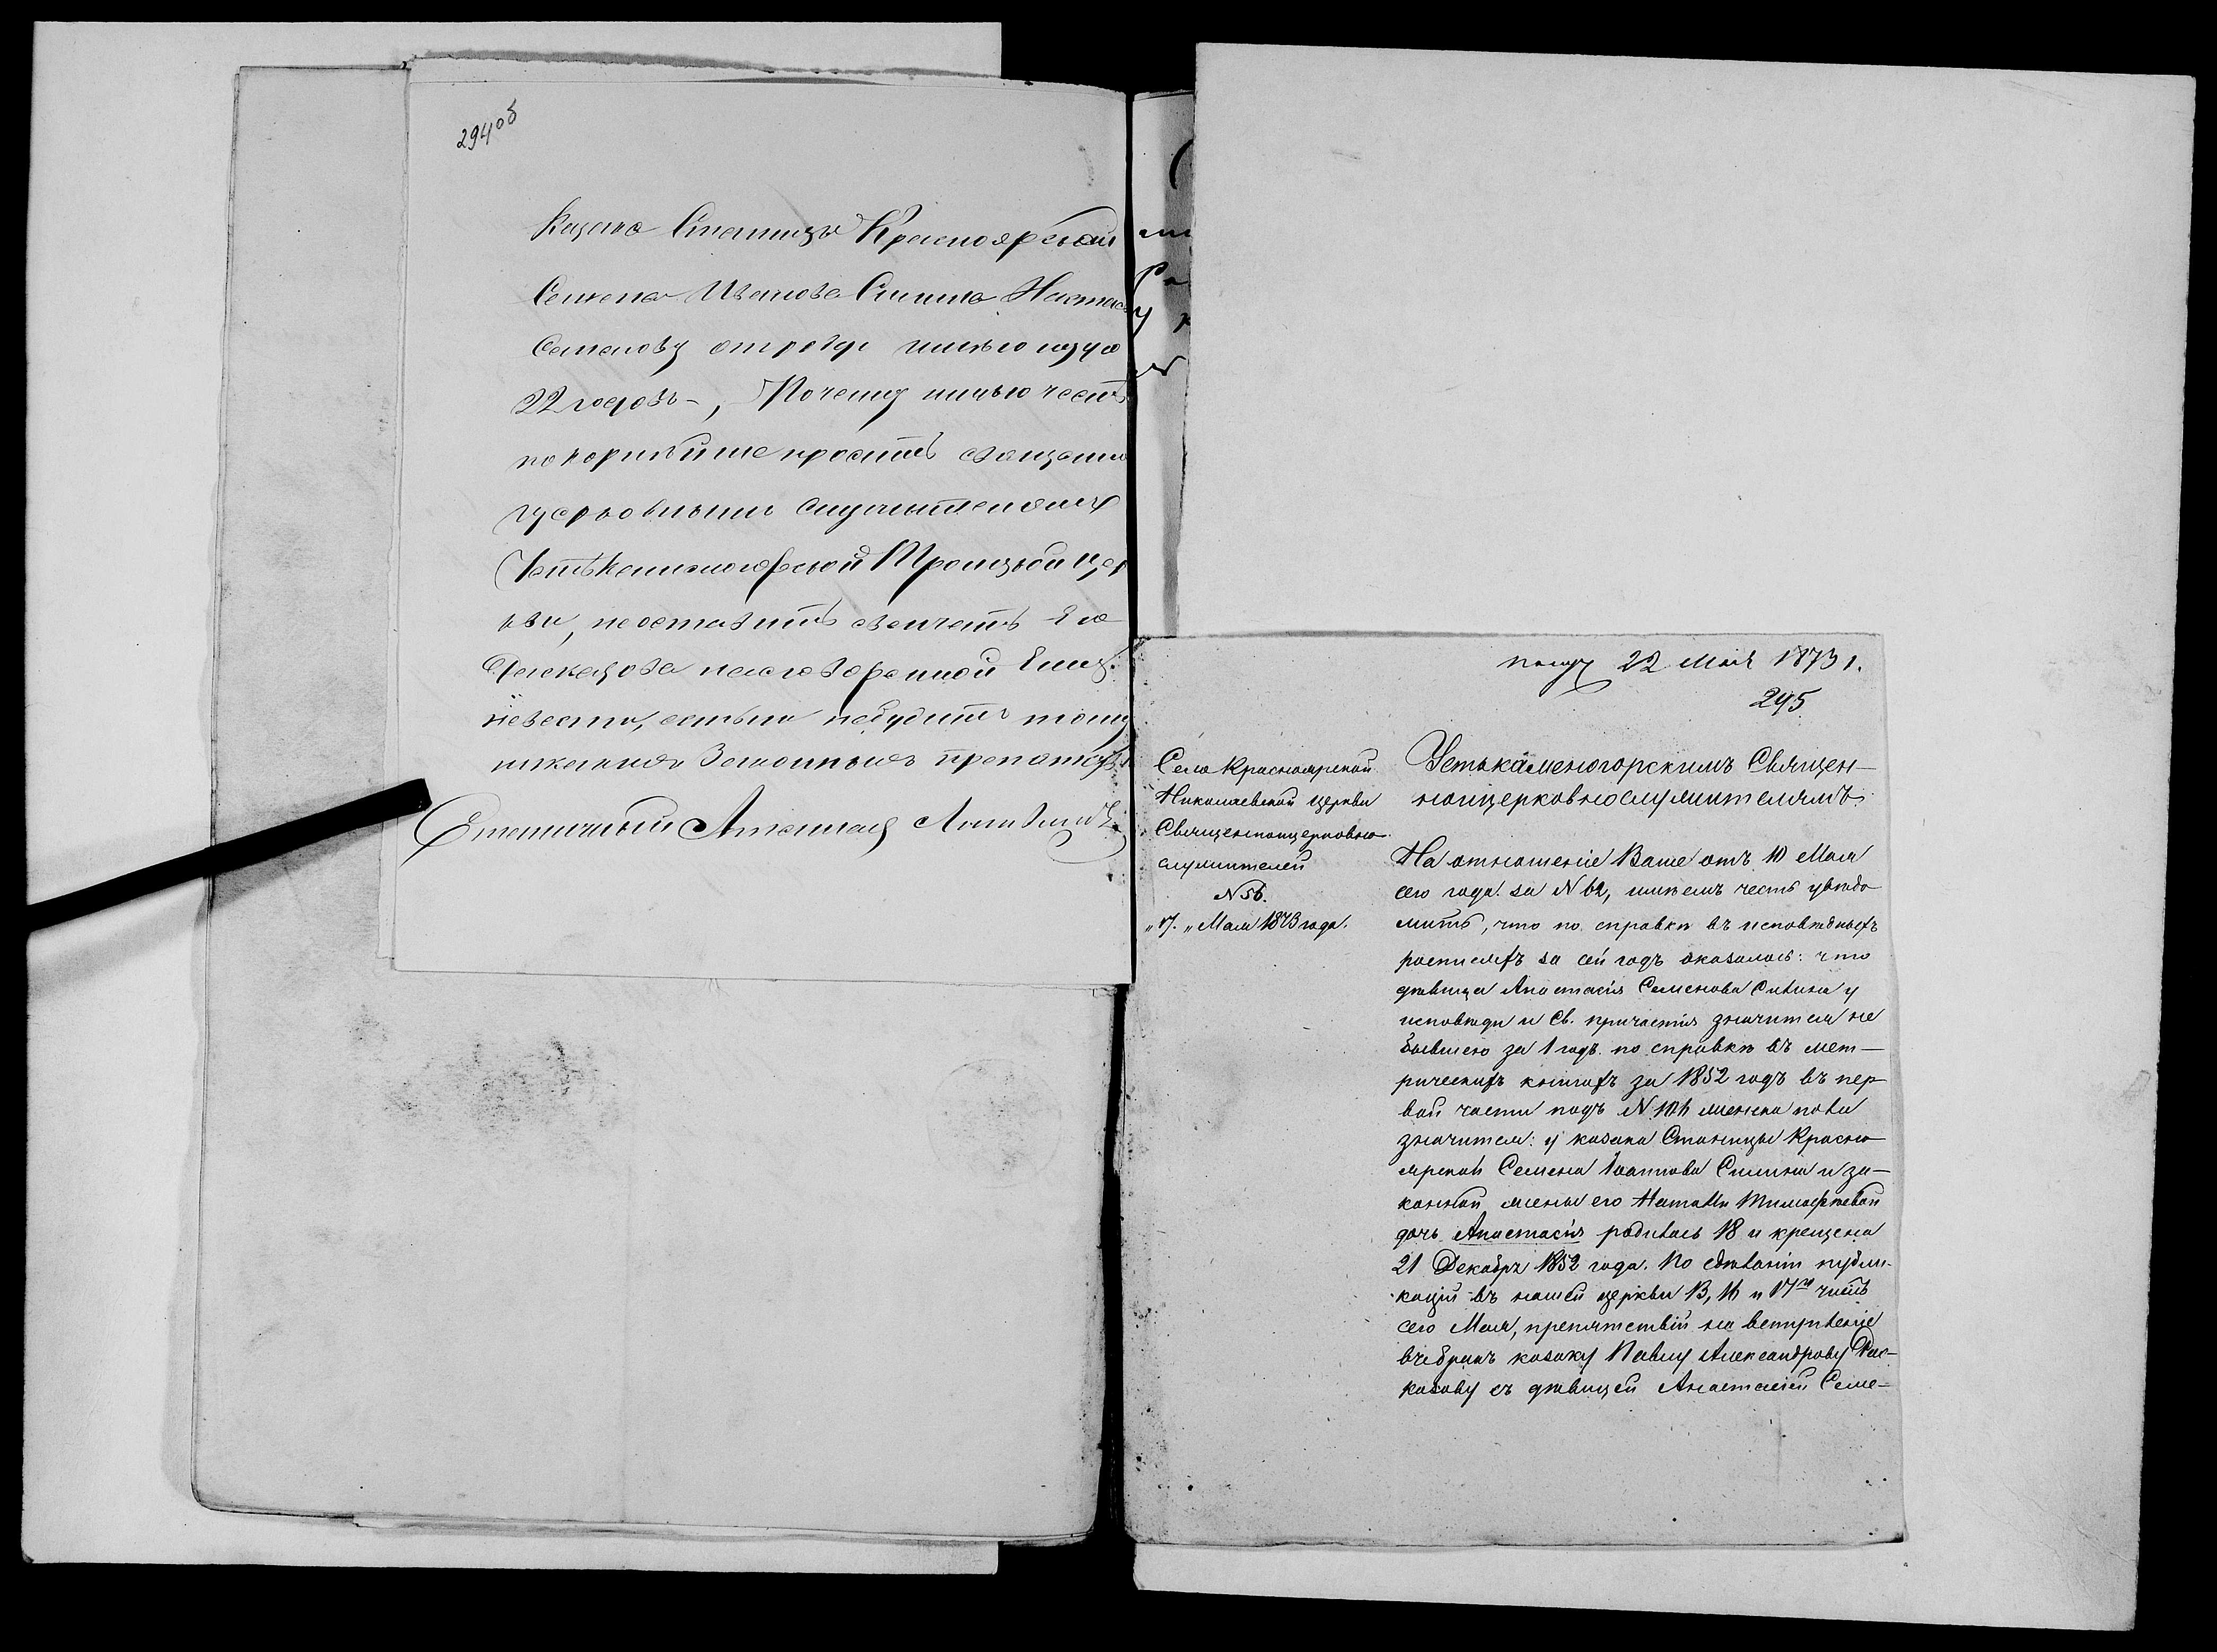 294об
Казака Станицы Красноярской
Семена Иванова Силина Настась
Семенову отроду имеющую
22 годовъ, Почему имею честь
покорнейше просить священно
церковнымъ служителямъ
Устькаменогорской Троицкой цер
кви, неоставить свенчать Его
Расказова наговоренной Ему
невестй, естьли небудитъ тому
Законныхъ препятств
Станичный Атаманъ
получ 22 Мая 1873 г.
295
Село Красноярской
Николаевской церкви
Священноцерковно-
служителей
N 56.
„17. „ Мая 1873 года.
Устькаменогорскимъ Священ-
ноцерковнослужителямъ
На отношеніе Ваше отъ 10 Мая
сего года за N 62, имѣемъ честь увѣдо
мить, что по справкѣ въ исповѣдныхъ
росписяхъ за сей годъ оказалось: что
дѣвица Анастасія Семенова Силина у
исповѣди и Св. причастія значится не
бывшею за 1 годъ. по справкѣ въ мет-
рическихъ книгахъ за 1852 годъ въ пер
вой части подъ N женска пола
значится: у казака Станицы Красно
ярской Семена Іоаннова Силина и за-
конной жены его Наталіи Тимофѣевой
дочь Анастасія родилась 18 и крещена
21 Декабря 1852 года. По сдѣланіи публи-
кацій въ нашей церкви 13, 16 и 17го числъ
сего Мая, препятствій на вступленіе
въ бракъ казаку Павлу Александрову Рас-
казову съ дѣвицей Анастасіей Семе-